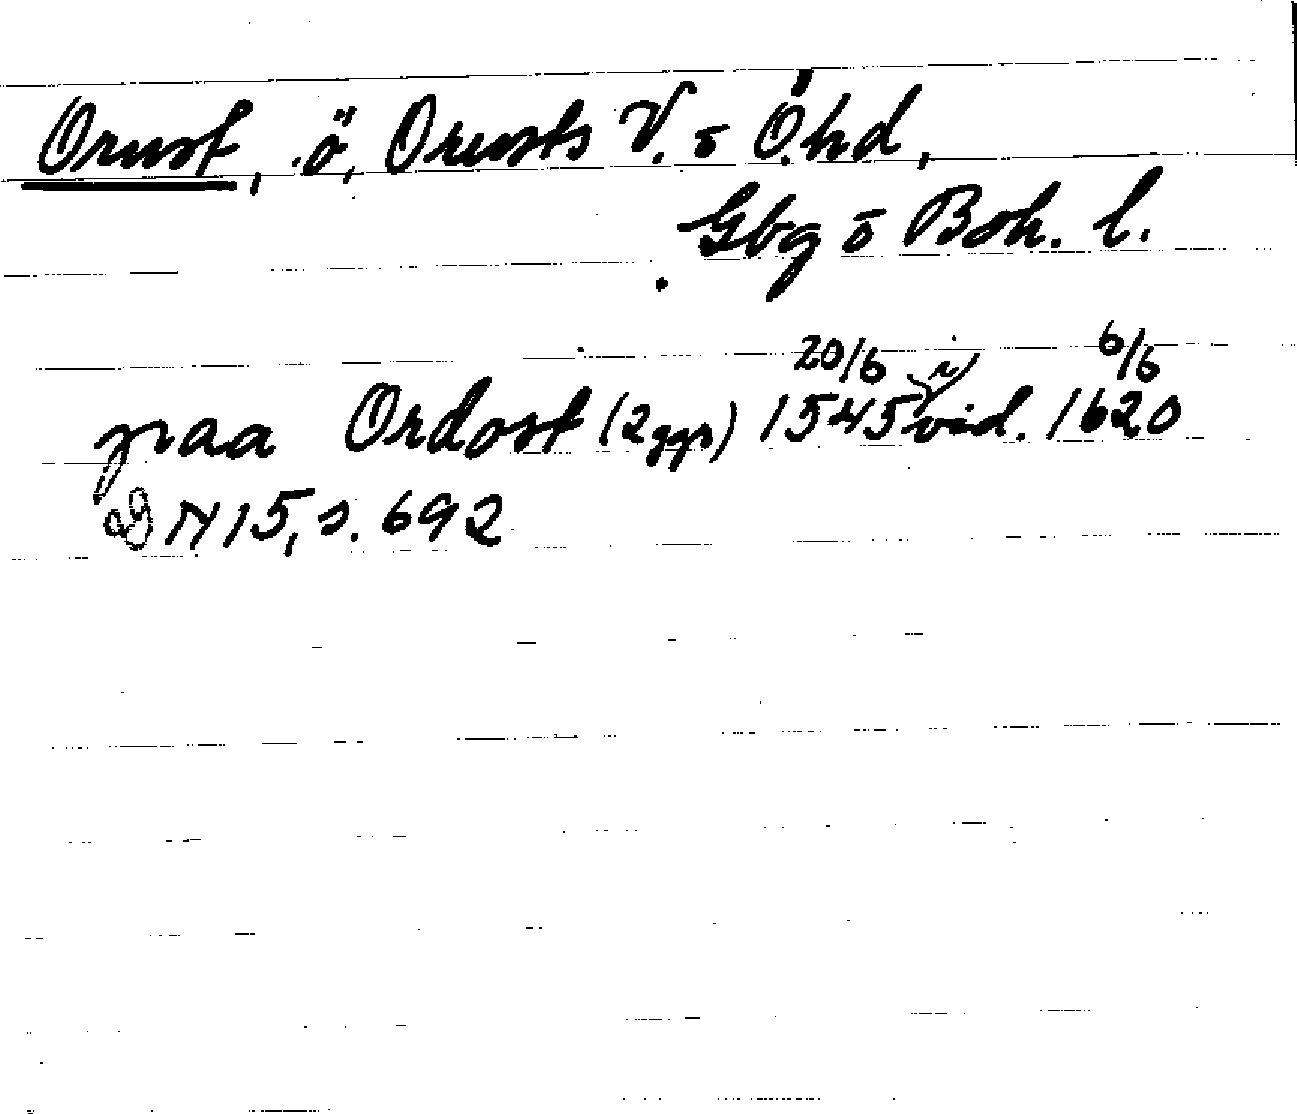 Orust, ö, Orusts V. o Ö. hd,
Gbg o Boh. l.
paa Ordost (2 ggr) 20/6 1545 i vid. 6/6 1620
DN 15, s. 692